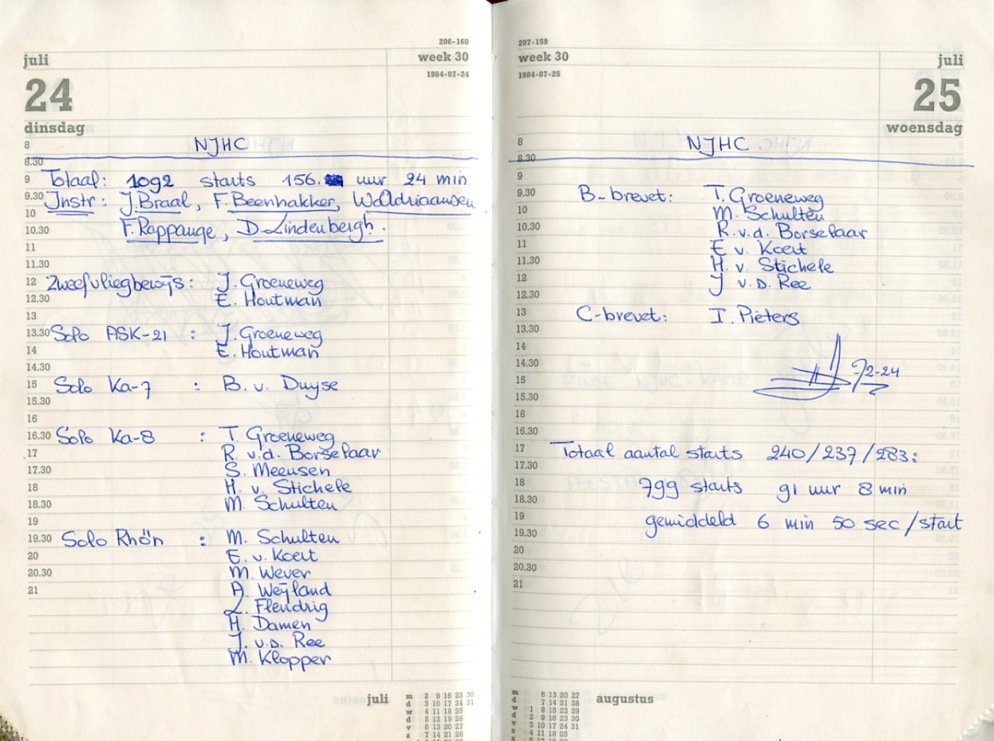 206-160
juli
week 30
1984-07-24
24
dinsdag
8 NJHC
8.30
9 Totaal: 1092 starts 156. uur 24 min
9.30 Instr: J. Braal, F. Beenhakker, Waldriaansen
10
10.30 F. Rappange, D. Lindenbergh.
11
11.30
12 Zweefvliegbewijs: J. Groeneweg
12.30 E. Houtman
13
13.30 Solo ASK-21 : J. Groeneweg
14 E. Houtman
14.30
15 Solo Ka-7 : B. v. Duyse
15.30
16
16.30 Solo Ka-8 : T. Groeneweg
17 R. v.d. Borselaar
17.30 S. Meeusen
18 H. v. Stichele
18.30 M. Schulten
19
19.30 Solo Rhön : M. Schulten
20 E. v. Koert
20.30 M. Wever
21 A. Weyland
L. Flendrig
H. Damen
J. v.d. Ree
M. Klopper
juli
m 2 9 16 23 30
d 3 10 17 24 31
w 4 11 18 25
d 5 12 19 26
v 6 13 20 27
z 7 14 21 28
207-159
week 30
juli
1984-07-25
25
woensdag
8 NJHC.
8.30
9
9.30 B-brevet: T. Groeneweg
10 M. Schulten
10.30 R. v.d. Borselaar
11 E v. Koert
11.30 H. v. Stichele
12 J v.d. Ree
12.30
13 C-brevet: I. Pieters
13.30
14
14.30
15
15.30
16
16.30
17 Totaal aantal starts 240/237/283:
17.30
18 799 starts 91 uur 8 min
18.30
19 gemiddeld 6 min 50 sec/start
19.30
20
20.30
21
augustus
m 6 13 20 27
d 7 14 21 28
w 1 8 15 22 29
d 2 9 16 23 30
v 3 10 17 24 31
z 4 11 18 25